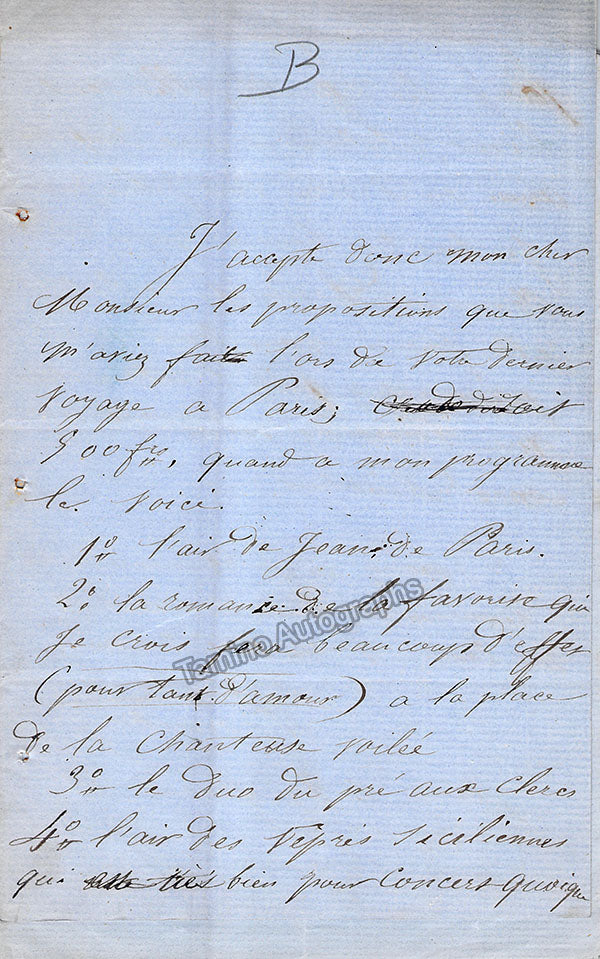 B
J'accepte donc mon cher
Monsieur les propositions que vous
m'aviez fait l'ors de votre dernier
voyage a Paris; soit
500 frs, quand a mon programme
le voici.
1o l'air de Jean de Paris.
2o la romance de la favorite que
je crois fera beaucoup d'effet
(pour tant d'amour) a la place
de la chanteuse voilée
3o le duo du pré aux clercs
4o l'air des Vêpres Siciliennes
qui bien pour concert quoique
Tamino Autographs